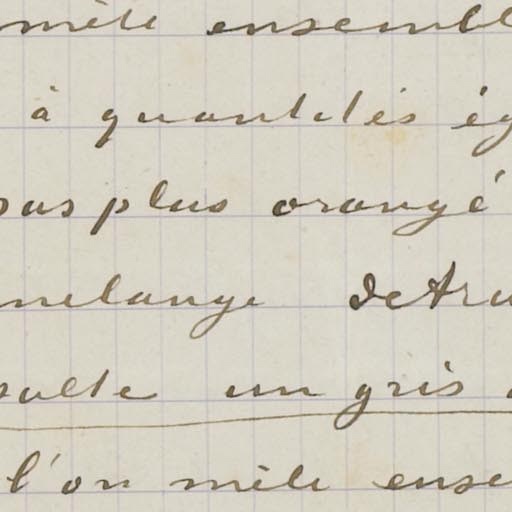 mêle ensembl
à quantités ég
pas plus orangé
melange detru
sulte un gris
l'on mêle ense